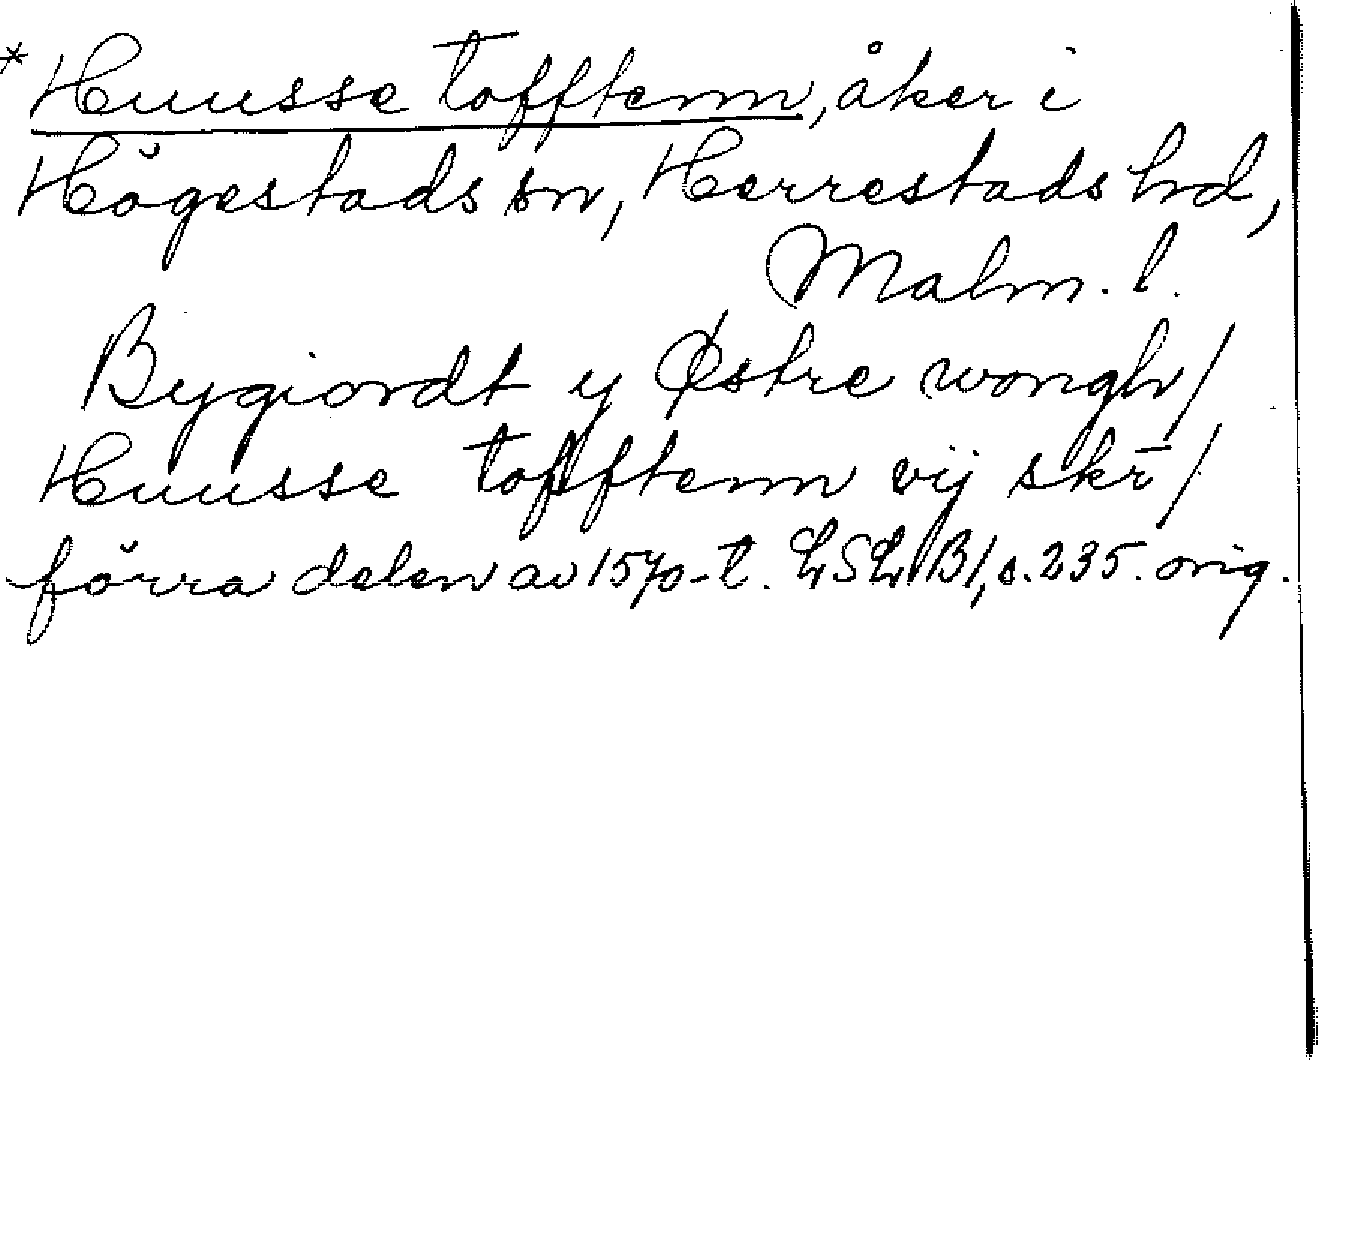 * Huusse tofftenn, åker i
Högestads sn, Herrestads hd,
Malm. l.
Bygiordt y Østre wongh/
Huusse tofftenn vij skr̄/
förra delen av 1570-t. LSLB1, s. 235. orig.